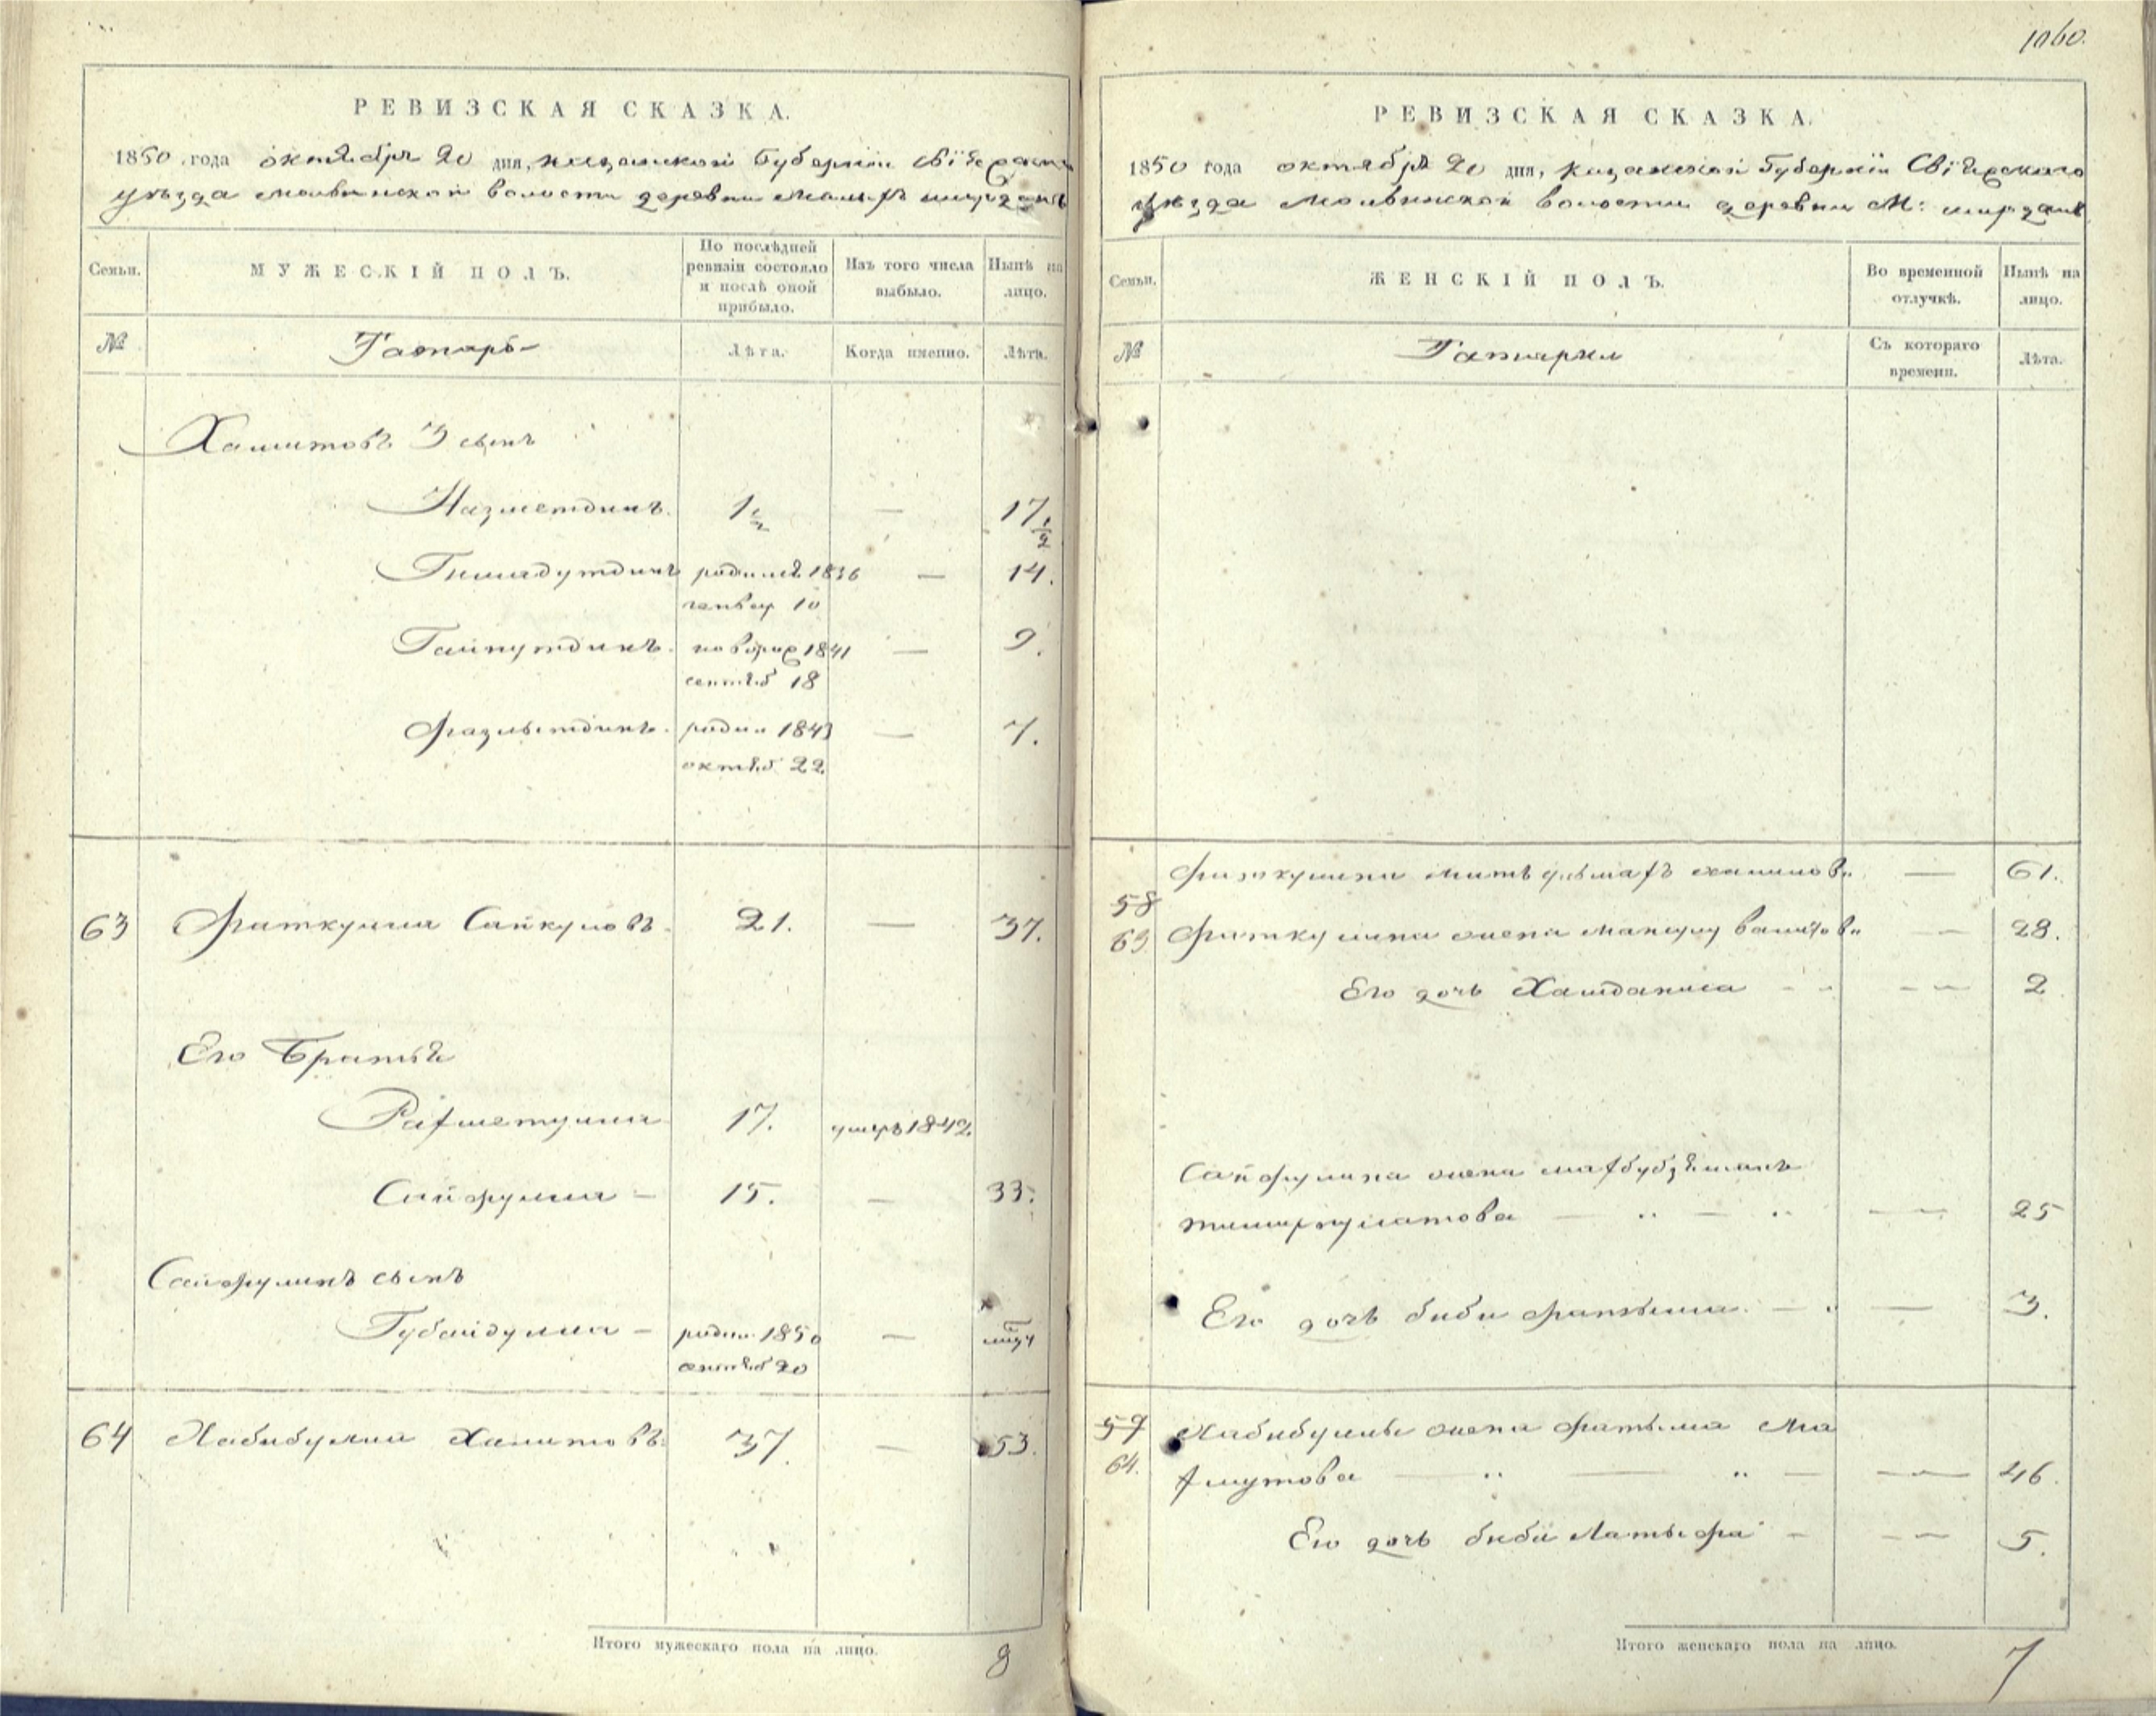 РЕВИЗСКАЯ СКАЗКА.
1850 года октября 20 дня, казанской Губерніи Свіяжскаго
уезда молвинской волости деревни малыхъ ширданъ
Семьи.
МУЖЕСКІЙ ПОЛЪ.
По послѣдней ревизіи состояло и послѣ оной прибыло.
Изъ того числа выбыло.
Нынѣ на лицо.
№
Татаръ
Лѣта.
Когда именно.
Лѣта.
Хамитовъ 3 сынъ
Назметдинъ. 1 1/2 — 17 1/2
Гимадутдинъ родился 1836 — 14.
генвар 10
Гайнутдинъ. 1841 — 9.
сентяб 18
Фазлытдинъ. родил 1843 — 7.
октяб 22
63 Фаткулла Сайкуловъ. 21. — 37.
Его Братья
Рахметулла 17. умеръ 1842
Сайфулла — 15. — 33.
Сайфулинъ сынъ
Губайдулла — родил 1850 —
сентяб 20
64 Хабибулла Хамитовъ. 37. — 53.
Итого мужескаго пола на лицо. 8
1060.
РЕВИЗСКАЯ СКАЗКА.
1850 года октября 20 дня, казанской Губерніи Свіяжскаго
уезда Молвинской волости деревни М: ширданъ
Семьи.
ЖЕНСКІЙ ПОЛЪ.
Во временной отлучкѣ.
Нынѣ на лицо.
№
Татаркл
Съ котораго времени.
Лѣта.
Фаткулина мать — 61.
58
63 Фаткулина жена — 28.
Его дочь Хамдániса — 2
Сайфулина жена махбубзямалъ
тимербулатова — 25
Его дочь биби фатыма — 3.
59 Хабибуллы жена фатыма Ма
64. хмутова — 46.
Его дочь биби Латыфа — 5.
Итого женскаго пола на лицо. 7